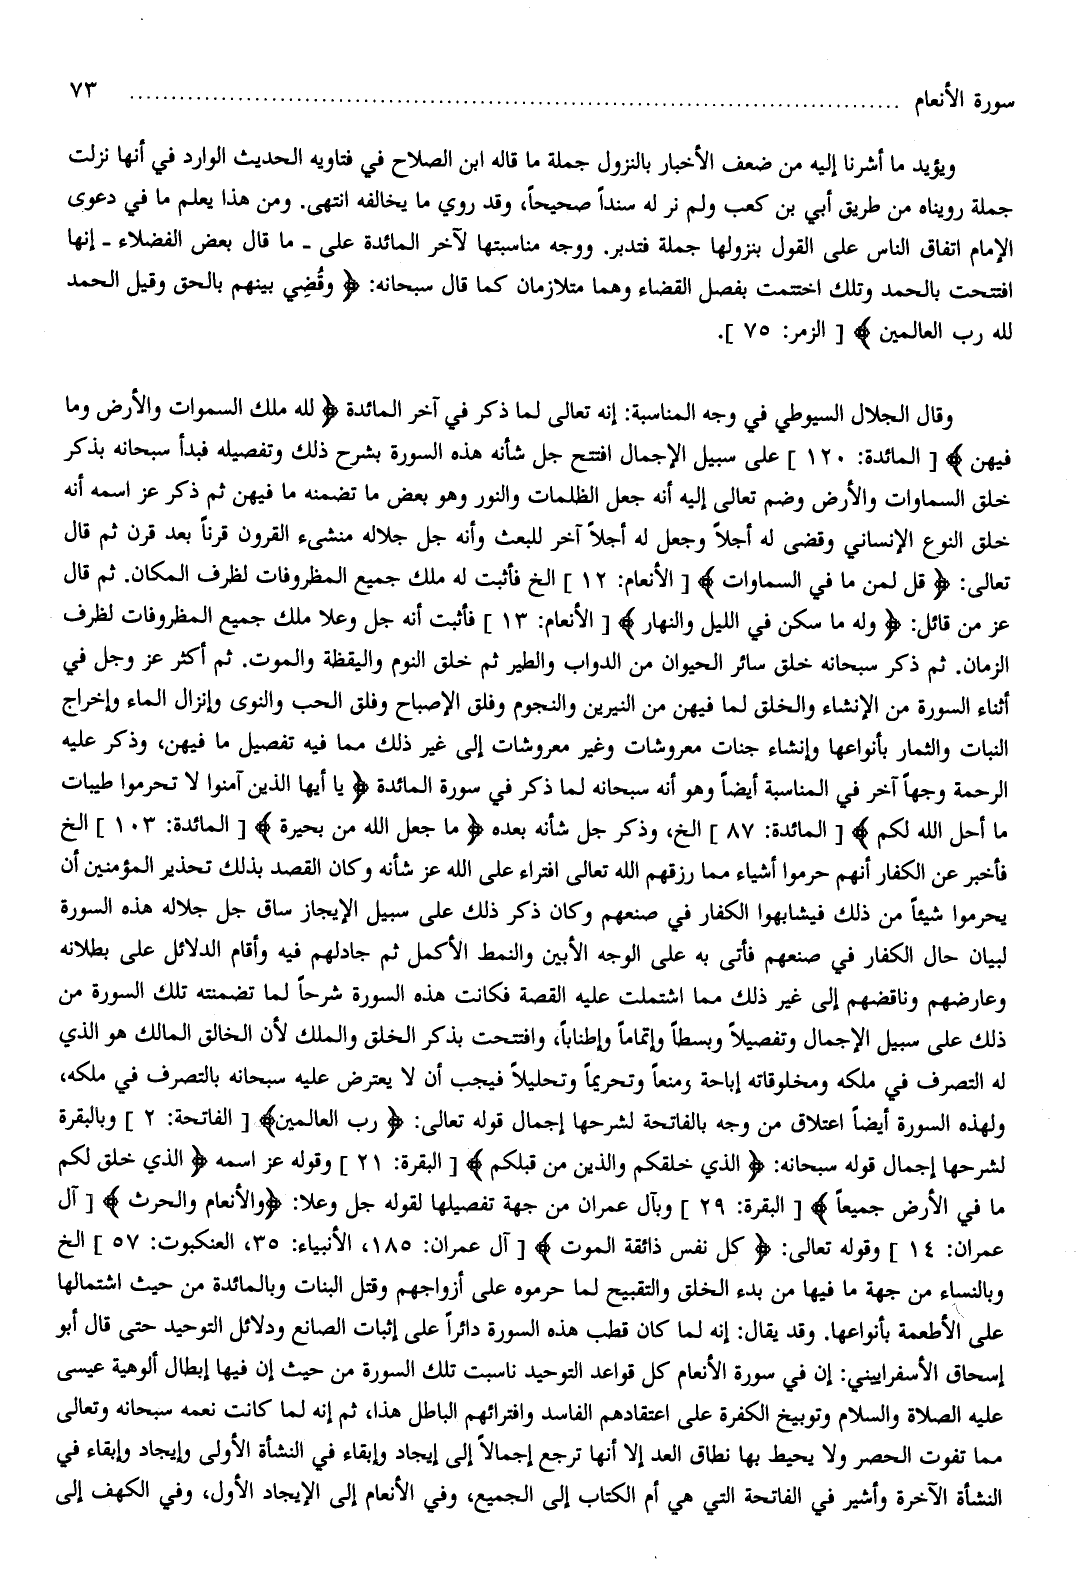 سورة الأنعام ........................................................................................ ٧٣
ويؤيد ما أشرنا إليه من ضعف الأخبار بالنزول جملة ما قاله ابن الصلاح في فتاويه الحديث الوارد في أنها نزلت
جملة رويناه من طريق أبي بن كعب ولم نر له سنداً صحيحاً، وقد روي ما يخالفه انتهى. ومن هذا يعلم ما في دعوى
الإمام اتفاق الناس على القول بنزولها جملة فتدبر. ووجه مناسبتها لآخر المائدة على ـ ما قال بعض الفضلاء ـ إنها
افتتحت بالحمد وتلك اختتمت بفصل القضاء وهما متلازمان كما قال سبحانه: ﴿ وقُضِي بينهم بالحق وقيل الحمد
لله رب العالمين ﴾ [ الزمر: ٧٥ ].
وقال الجلال السيوطي في وجه المناسبة: إنه تعالى لما ذكر في آخر المائدة ﴿ لله ملك السموات والأرض وما
فيهن ﴾ [ المائدة: ١٢٠ ] على سبيل الإجمال افتتح جل شأنه هذه السورة بشرح ذلك وتفصيله فبدأ سبحانه بذكر
خلق السماوات والأرض وضم تعالى إليه أنه جعل الظلمات والنور وهو بعض ما تضمنه ما فيهن ثم ذكر عز اسمه أنه
خلق النوع الإنساني وقضى له أجلاً وجعل له أجلاً آخر للبعث وأنه جل جلاله منشىء القرون قرناً بعد قرن ثم قال
تعالى: ﴿ قل لمن ما في السماوات ﴾ [ الأنعام: ١٢ ] الخ فأثبت له ملك جميع المظروفات لظرف المكان. ثم قال
عز من قائل: ﴿ وله ما سكن في الليل والنهار ﴾ [ الأنعام: ١٣ ] فأثبت أنه جل وعلا ملك جميع المظروفات لظرف
الزمان. ثم ذكر سبحانه خلق سائر الحيوان من الدواب والطير ثم خلق النوم واليقظة والموت. ثم أكثر عز وجل في
أثناء السورة من الإنشاء والخلق لما فيهن من النيرين والنجوم وفلق الإصباح وفلق الحب والنوى وإنزال الماء وإخراج
النبات والثمار بأنواعها وإنشاء جنات معروشات وغير معروشات إلى غير ذلك مما فيه تفصيل ما فيهن، وذكر عليه
الرحمة وجهاً آخر في المناسبة أيضاً وهو أنه سبحانه لما ذكر في سورة المائدة ﴿ يا أيها الذين آمنوا لا تحرموا طيبات
ما أحل الله لكم ﴾ [ المائدة: ٨٧ ] الخ، وذكر جل شأنه بعده ﴿ ما جعل الله من بحيرة ﴾ [ المائدة: ١٠٣ ] الخ
فأخبر عن الكفار أنهم حرموا أشياء مما رزقهم الله تعالى افتراء على الله عز شأنه وكان القصد بذلك تحذير المؤمنين أن
يحرموا شيئاً من ذلك فيشابهوا الكفار في صنعهم وكان ذكر ذلك على سبيل الإيجاز ساق جل جلاله هذه السورة
لبيان حال الكفار في صنعهم فأتى به على الوجه الأبين والنمط الأكمل ثم جادلهم فيه وأقام الدلائل على بطلانه
وعارضهم وناقضهم إلى غير ذلك مما اشتملت عليه القصة فكانت هذه السورة شرحاً لما تضمنته تلك السورة من
ذلك على سبيل الإجمال وتفصيلاً وبسطاً وإتماماً وإطناباً، وافتتحت بذكر الخلق والملك لأن الخالق المالك هو الذي
له التصرف في ملكه ومخلوقاته إباحة ومنعاً وتحريماً وتحليلاً فيجب أن لا يعترض عليه سبحانه بالتصرف في ملكه،
ولهذه السورة أيضاً اعتلاق من وجه بالفاتحة لشرحها إجمال قوله تعالى: ﴿ رب العالمين﴾ [ الفاتحة: ٢ ] وبالبقرة
لشرحها إجمال قوله سبحانه: ﴿ الذي خلقكم والذين من قبلكم ﴾ [ البقرة: ٢١ ] وقوله عز اسمه ﴿ الذي خلق لكم
ما في الأرض جميعاً ﴾ [ البقرة: ٢٩ ] وبآل عمران من جهة تفصيلها لقوله جل وعلا: ﴿والأنعام والحرث ﴾ [ آل
عمران: ١٤ ] وقوله تعالى: ﴿ كل نفس ذائقة الموت ﴾ [ آل عمران: ١٨٥، الأنبياء: ٣٥، العنكبوت: ٥٧ ] الخ
وبالنساء من جهة ما فيها من بدء الخلق والتقبيح لما حرموه على أزواجهم وقتل البنات وبالمائدة من حيث اشتمالها
على الأطعمة بأنواعها. وقد يقال: إنه لما كان قطب هذه السورة دائراً على إثبات الصانع ودلائل التوحيد حتى قال أبو
إسحاق الأسفراييني: إن في سورة الأنعام كل قواعد التوحيد ناسبت تلك السورة من حيث إن فيها إبطال ألوهية عيسى
عليه الصلاة والسلام وتوبيخ الكفرة على اعتقادهم الفاسد وافترائهم الباطل هذا، ثم إنه لما كانت نعمه سبحانه وتعالى
مما تفوت الحصر ولا يحيط بها نطاق العد إلا أنها ترجع إجمالاً إلى إيجاد وإبقاء في النشأة الأولى وإيجاد وإبقاء في
النشأة الآخرة وأشير في الفاتحة التي هي أم الكتاب إلى الجميع، وفي الأنعام إلى الإيجاد الأول، وفي الكهف إلى